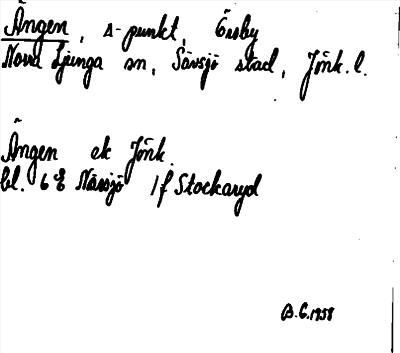 Ängen, s-punkt, Örsby
Norra Ljunga sn, Sävsjö stad, Jönk. l.
Ängen ek Jönk.
bl. 6 E Nässjö 1 f Stockaryd
B.G. 1958